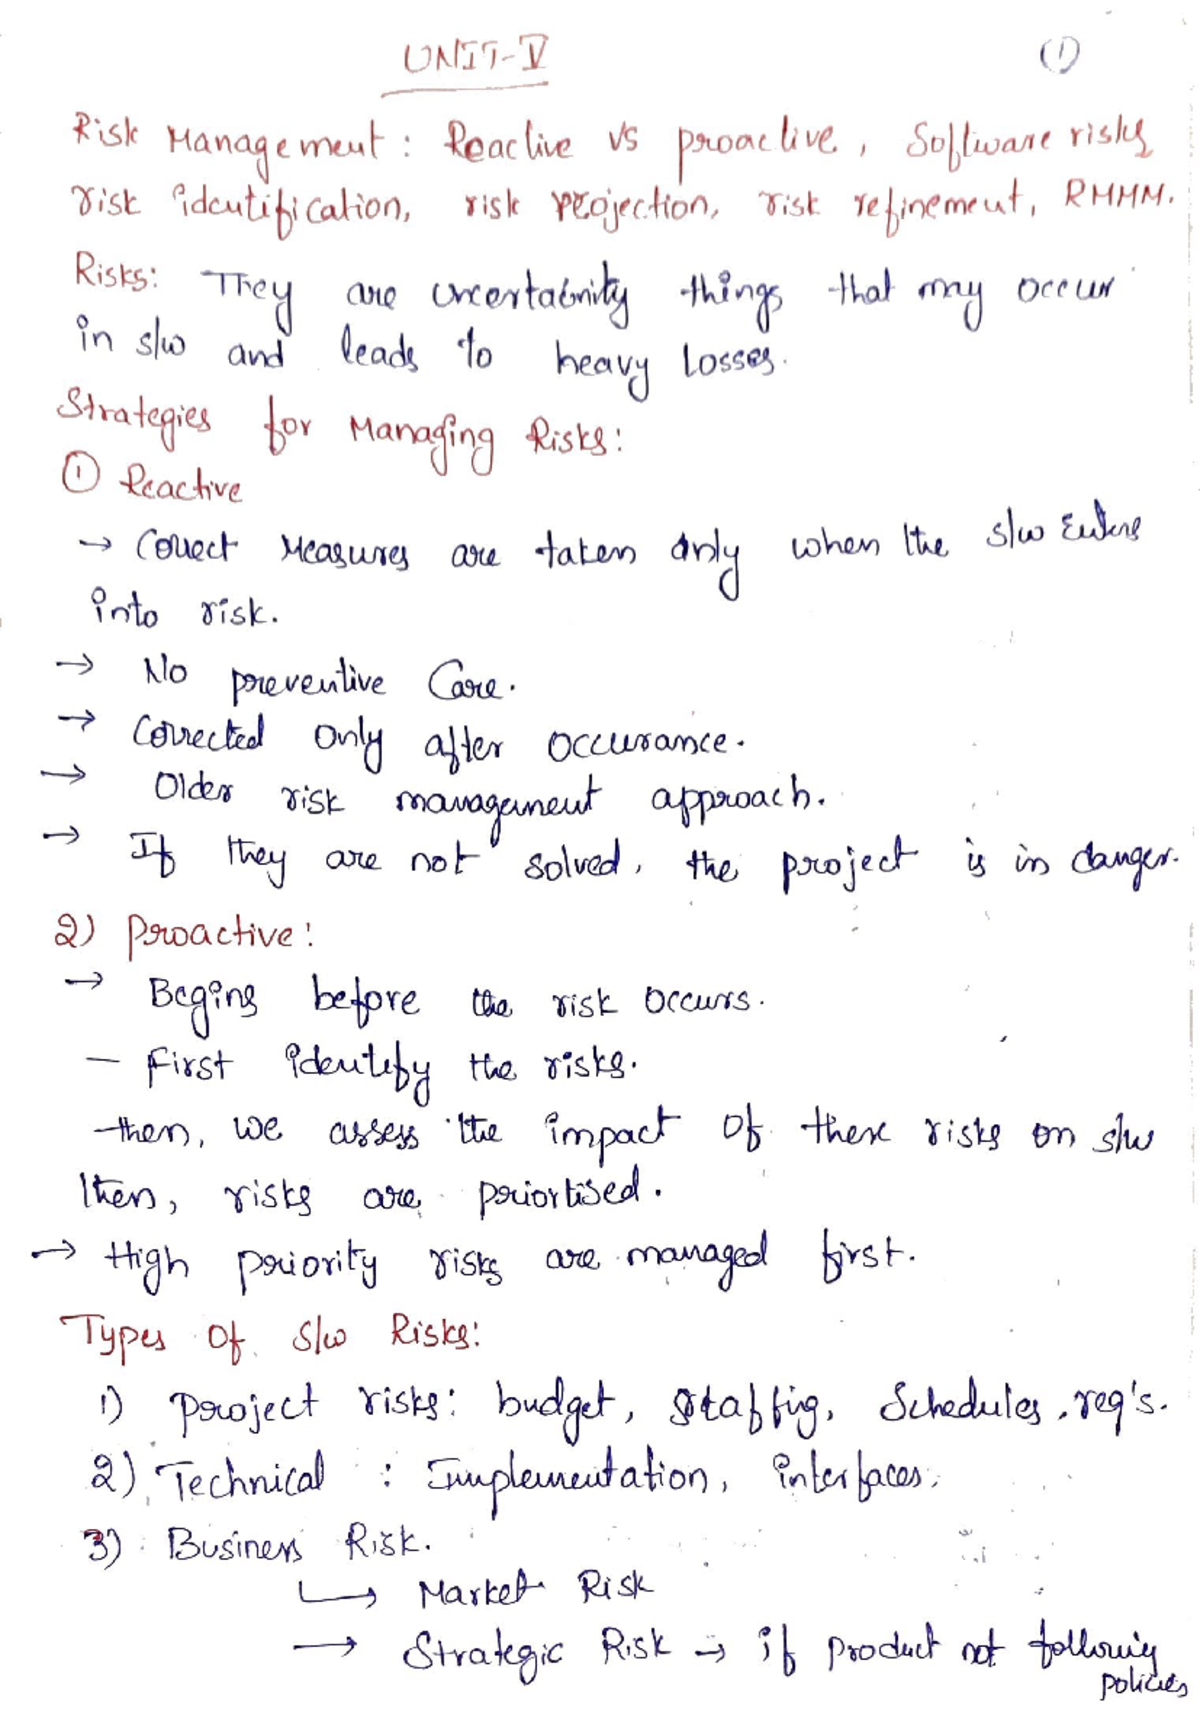 UNIT-V
(1)
Risk Management : Reactive vs proactive, Software risks
risk identification, risk projection, risk refinement, RMMM.
Risks: They are uncertainity things that may occur
in s/w and leads to heavy losses.
Strategies for Managing Risks:
① Reactive
→ Correct Measures are taken only when the s/w Enters
into risk.
→ No preventive Care.
→ Corrected only after occurance.
→ Older risk management approach.
→ If they are not solved, the project is in danger.
2) Proactive:
→ Begins before the risk occurs.
- First identify the risks.
then, we assess the impact of these risks on s/w
then, risks are priortised.
→ High priority risks are managed first.
Types Of S/w Risks:
1) Project risks: budget, staffig, Schedules, req's.
2) Technical : Implementation, interfaces.
3) Business Risk.
↳ Market Risk
→ Strategic Risk → if product not following
policies